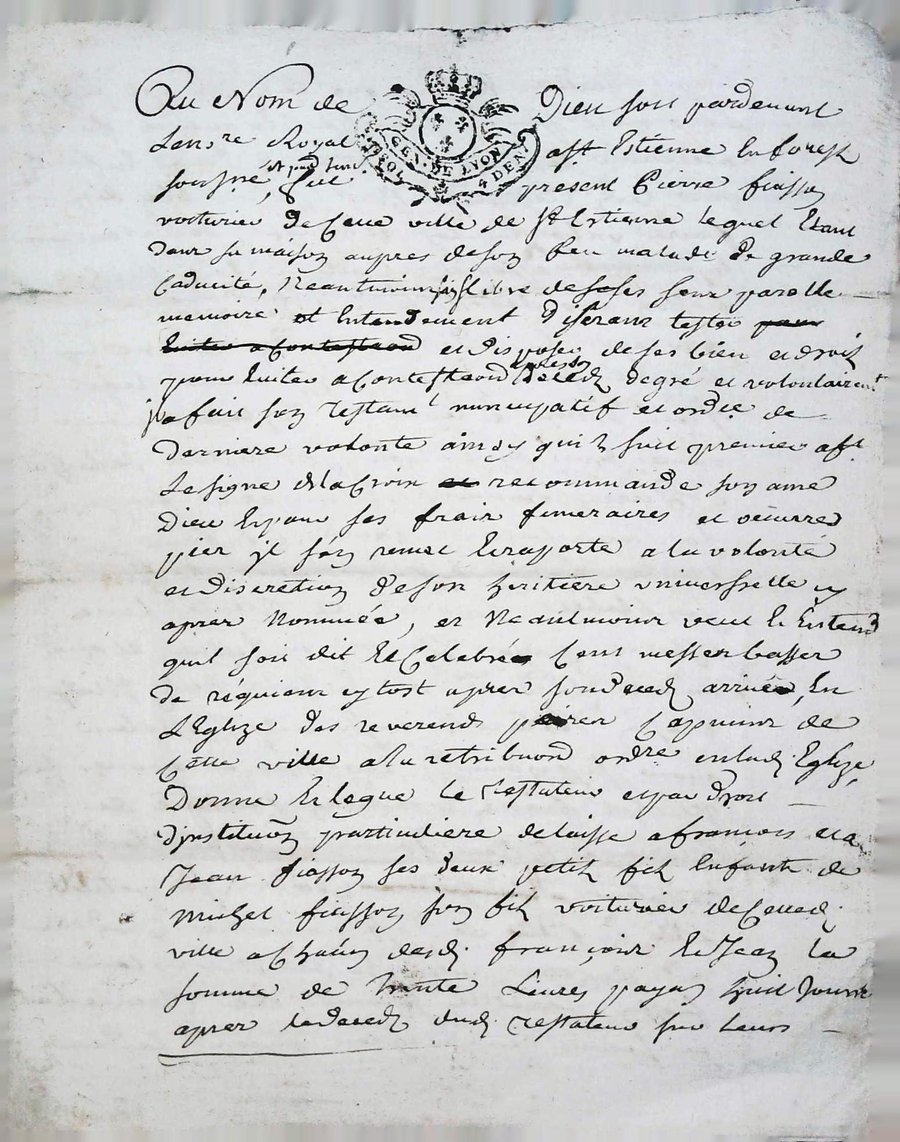 Au Nom de Dieu soit pardevant
Royal St Estienne en forest
soussne, fut present Pierre fiasson
GEN · DE LYON
4 DEN
voiturier de Cette ville de St Estienne lequel Etant
dans sa maison aupres de son feu malade de grande
Caducité, Neantmoins libre de ses sens parolle
memoire et Entendement disirant tester pour
Eviter a Contestaon et disposer de ses bien et droit
pour Eviter a Contestaon degré et volontairemt
a fait son testamt nuncupatif et ordre de
derniere volonte ainsy quil suit premier
Le signe de la Croix et recommandé son ame
Dieu Et pour ses frais funeraires et oeuvres
pies jl sen remet Et raporte a la volonté
et discretion de son heritiere universselle cy
apres Nommée, et Neantmoins veut Et Entend
quil soit dit Et Celebrée Cent messes basses
de requiem sy tost apres son deced arrivée, En
L'Eglize des reverends peres Capucins de
Cette ville a la retribuon ordre en lad. Eglize,
Donne Et legue le Testateur et par droit
d'jnstituon particuliere delaisse a francois et a
Jean fiasson ses deux petits fils Enfants de
Michel fiasson son fils voiturier de Cetted.
ville a Chacun desd. françois Et Jean la
somme de trente Livres payab huit Jours
apres le deced dud. Testateur sur Leurs